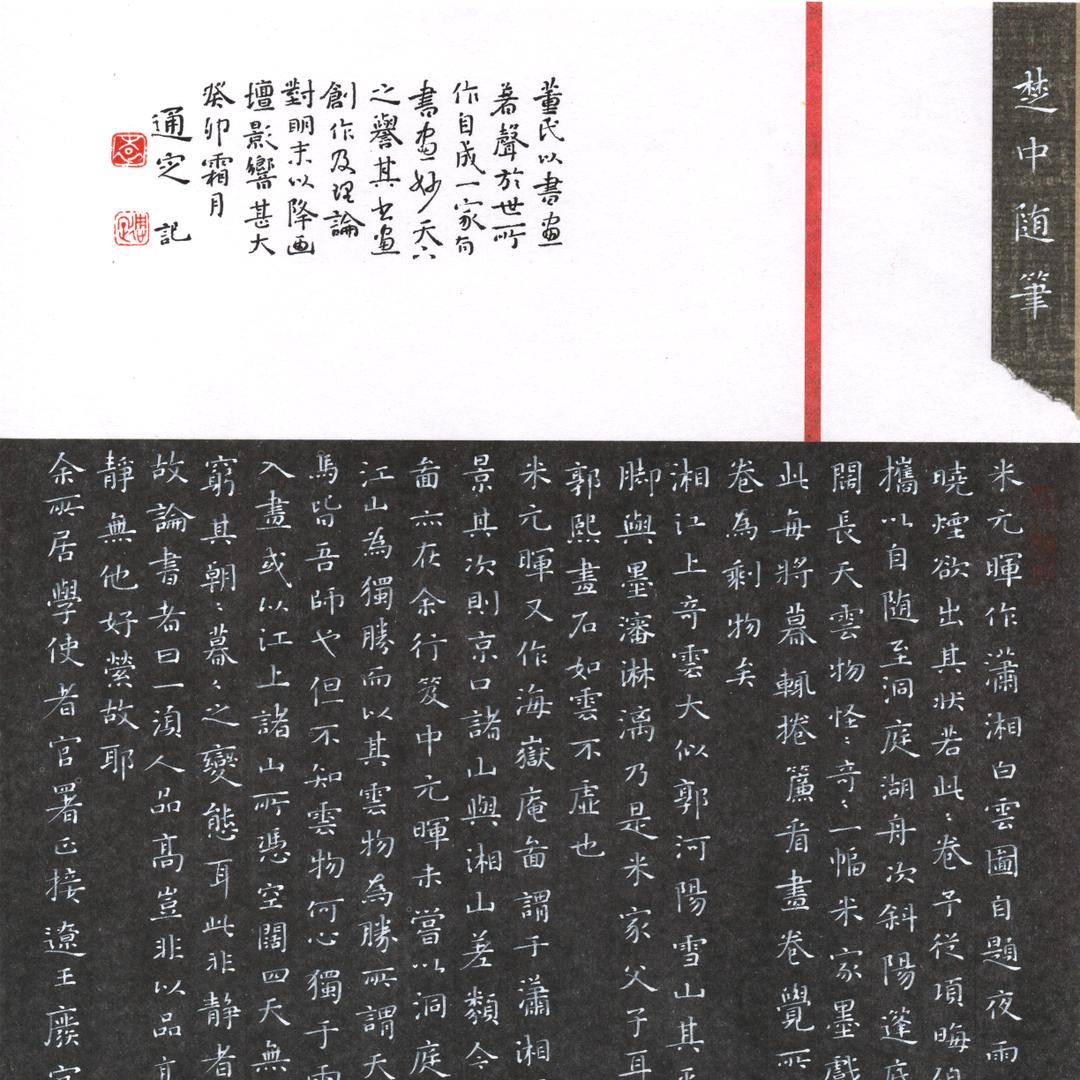 楚中随筆
董氏以書畫
著聲於世所
作自成一家有
書画妙天下
之譽其書畫
創作及理論
對明末以降画
壇影響甚大
癸卯霜月
通定 記
米元暉作瀟湘白雲圖自題夜雨
曉煙欲出其狀若此〻卷予從項晦伯
攜以自随至洞庭湖舟次斜陽蓬底
闊長天雲物怪〻竒〻一幅米家墨戲
此每將暮輒捲簾看畫卷覺所
卷為剩物矣
湘江上竒雲大似郭河陽雪山其平
脚與墨瀋淋漓乃是米家父子耳
郭熙畫石如雲不虛也
米元暉又作海嶽庵啚謂于瀟湘
景其次則京口諸山與湘山差類今
啚亦在余行笈中元暉未嘗以洞庭
江山為獨勝而以其雲物為勝所謂天
馬皆吾師也但不知雲物何心獨于
入畫或以江上諸山所憑空闊四天無
窮其朝〻暮〻之變態耳此非静者
故論書者曰一湏人品髙豈非以品髙
靜無他好縈故耶
余所居學使者官署正接遼王廢宮